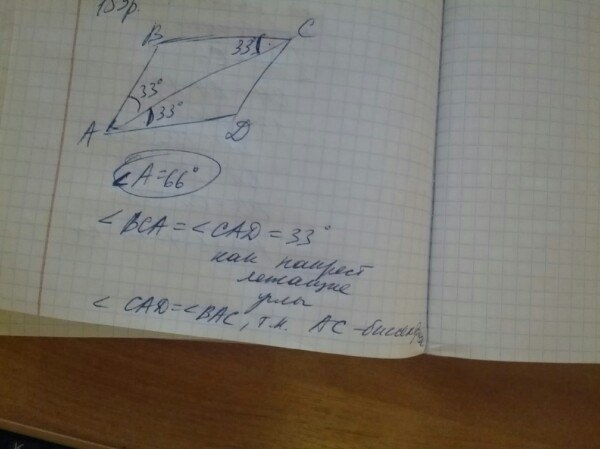 B
C
33°
33°
33°
A
D
∠A=66°
∠BCA=∠CAD=33°
как накрест
лежащие
углы
∠CAD=∠BAC, т.к. AC-биссектриса